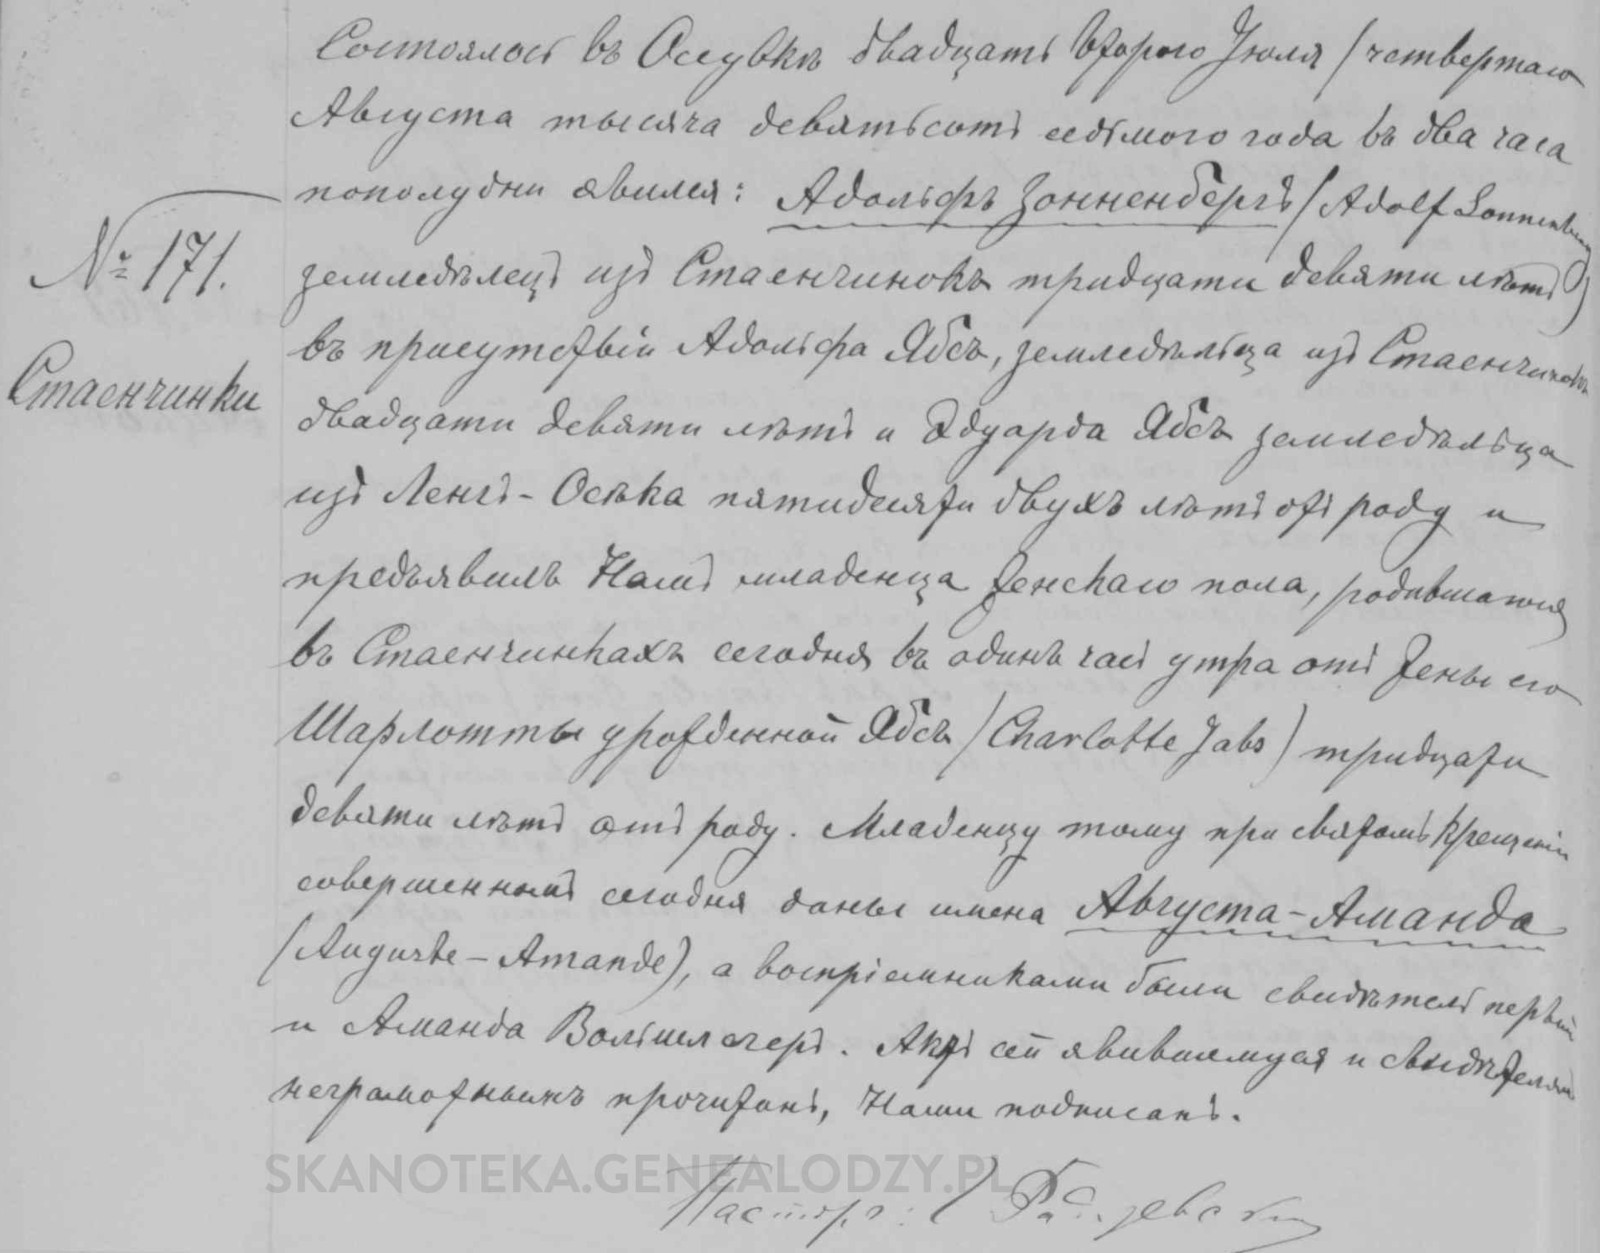 Состоялось въ Осувкѣ двадцать второго Іюля / четвертаго
Августа тысяча девятьсотъ седьмого года въ два часа
пополудни явился: Адольфъ Зонненбергъ (Adolf Sonnenberg)
№ 171.
земледѣлецъ изъ Стаенчинокъ тридцати девяти лѣтъ
въ присутствіи Адольфа Ябсъ, земледѣльца изъ Стаенчинокъ
Стаенчинки
двадцати девяти лѣтъ и Эдуарда Ябсъ земледѣльца
изъ Ленгъ-Осѣка пятидесяти двухъ лѣтъ отъ роду и
предъявилъ Намъ младенца женскаго пола, родившагося
въ Стаенчинкахъ сегодня въ одинъ часъ утра отъ жены его
Шарлотты урожденной Ябсъ (Charlotte Jabs) тридцати
девяти лѣтъ отъ роду. Младенцу тому при святомъ крещеніи
совершенномъ сегодня даны имена Августа-Аманда
(Auguste-Amande), а воспріемниками были свидѣтель первый
и Аманда Вольшлегеръ. Актъ сей явившемуся и свидѣтелямъ
неграмотнымъ прочитанъ, Нами подписанъ.
SKANOTEKA.GENEALODZY.PL
Пасторъ: